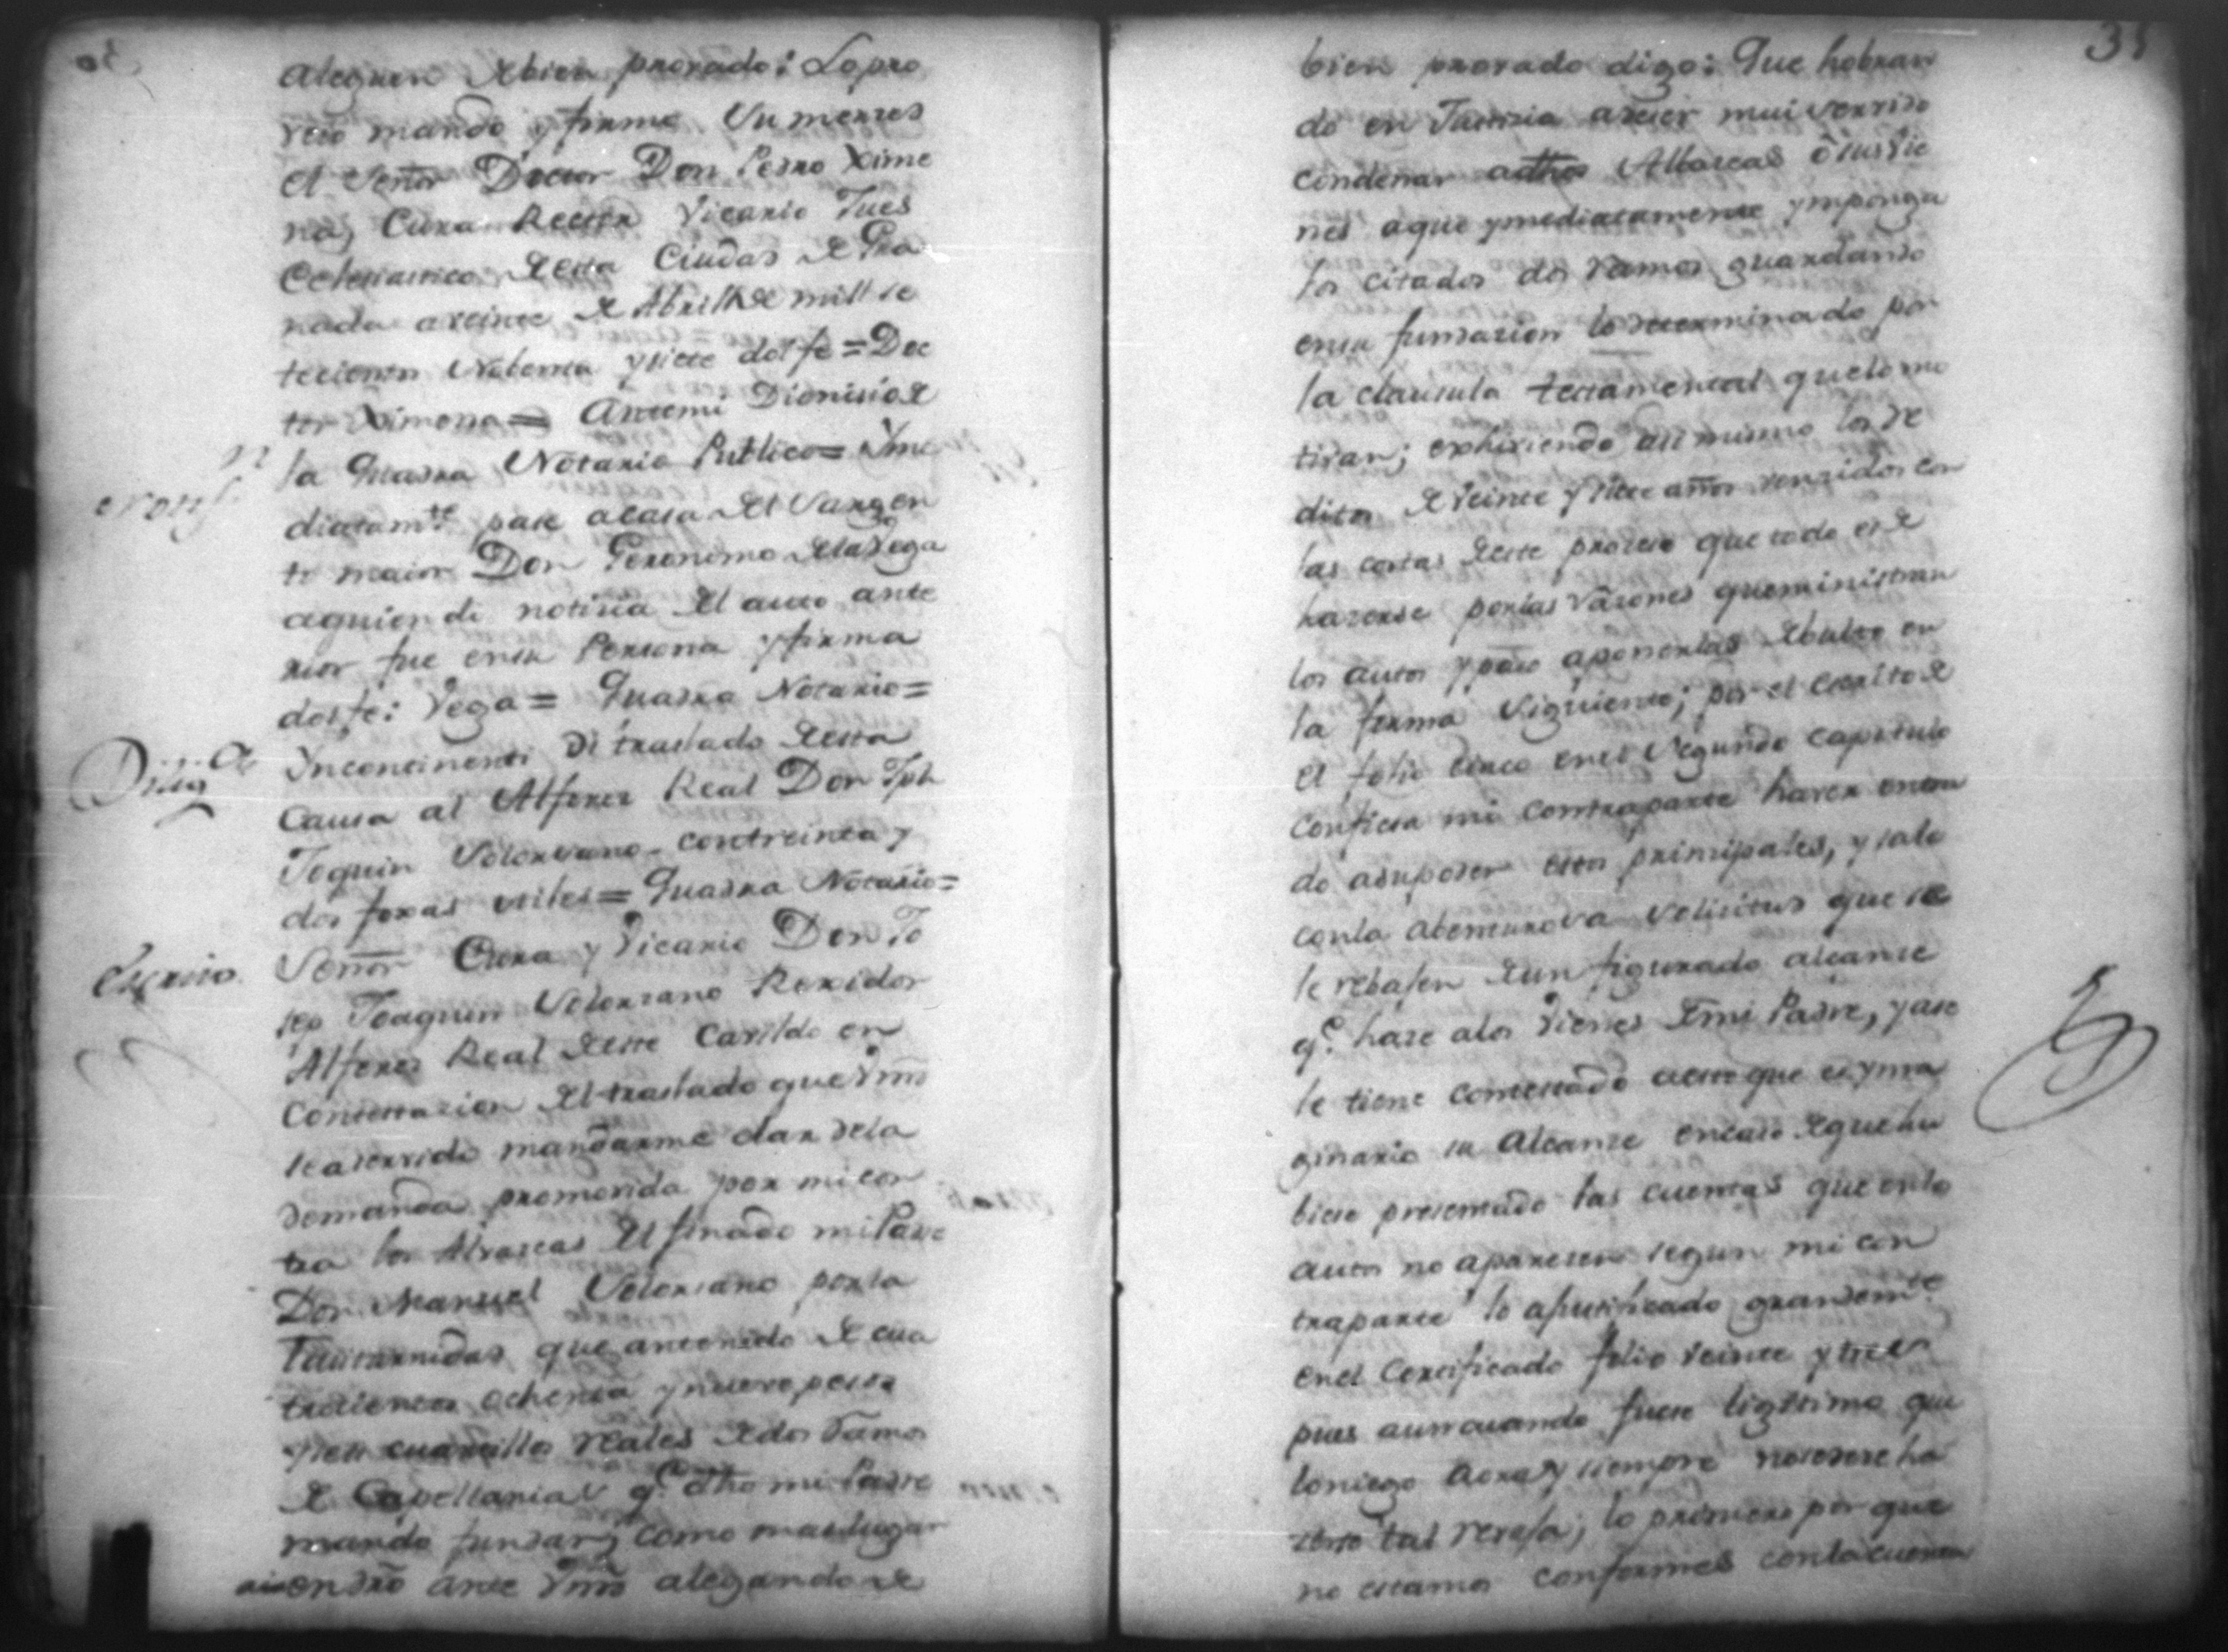 aleguen de bien provado: Lo pro
veio mando y firmo Su merced
el Señor Doctor Don Pedro Xime
na, Cura Rector Vicario Jues
Eclesiastico desta Ciudad de Gra
nada a veinte de Abril de mill se
tecientos Nobenta y siete doi fe = Doc
tor Ximena = Antemi Dionisio de
la Quadra Notario Publico = Yme
diatamte pase a casa del Sargen
to maior Don Geronimo de la Vega
a quien di noticia del auto ante
rior fue en su Persona y firma
doi fe: Vega = Quadra Notario =
Dilig.a
Yncontinenti di traslado desta
causa al Alferes Real Don Jph
Joquin Solorzano con treinta y
dos foxas utiles = Quadra Notario =
Escrito
Señor Cura y Vicario Don Jo
sep Joaquin Solorzano Rexidor
Alferes Real deste Cavildo en
Contestazion del traslado que Vmd
se a servido mandarme dar de la
demanda promovida por mi con
tra los Alvaceas del finado mi Padre
Don Manuel Solorzano por la
que an tenido de cua
trocientos ochenta y nueve pesos
quartillos reales de dos Ramos
de Capellanias q.e dho mi Padre
mando fundar, como mas lugar
aia en dro ante Vmd alegando de
31
bien provado digo: Que hobran
do en Justicia a de ser mui servido
condenar a dhos Albaceas ô sus vie
nes a que ymediatamente ymponga
los citados dos ramos guardando
en su fundazion lo determinado por
la clausula testamental que lo mo
tivan; exhiviendo asi mismo los re
ditos de veinte y siete años venzidos con
las costas deste proceso que todo es de
hazerse por las razones que ministran
los autos y paso a ponerlas de bulto en
la forma siguiente; por el escrito de
el folio cinco en el Segundo capitulo
confiesa mi contraparte haver entra
do a su poder estos principales, y sale
con la abenturova solicitud que se
le rebasen de un figurado alcanse
q.e haze a los vienes de mi Padre, y a se
le tiene contestado a esto que es yma
ginario su Alcanse en caso de que hu
biese presentado las cuentas que en lo
autos no aparesen segun mi con
traparte lo a justificado grandemte
en el Certificado folio veinte y tres
pues aun cuando fuese ligitimo que
lo niego aora y siempre no se deve ha
tal revasa; lo primero por que
no estamos conformes con la cuenta